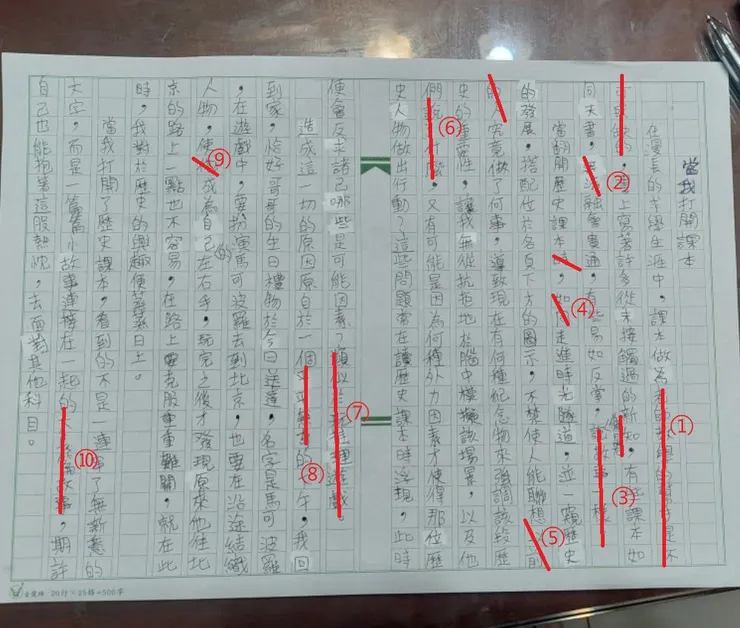 當我打開課本
在漫長的求學生涯中，課本做為
可或缺的，書上寫著許多從未接觸過的新知，有些課本如
同天書，無法融會貫通，有些易如反掌，
當翻開歷史課本時，如 走進時光隧道，並一窺歷史
的發展，搭配位於各頁下方的圖示，不禁使人能聯想 前
人究竟做了何事，導致現在有何種紀念物來強調該段歷
史的重要性，讓我無從抗拒地於腦中模擬該場景，以及他
們說 什麼，又有可能是因為何種外力因素才使得那位歷
史人物做出行動？這些問題常在讀歷史課本時浮現，此時
便會反求諸己哪些是可能因素？ 遊戲。
造成這一切的原因原自於一個 的 午，我回
到家，恰好哥哥的生日禮物於今日送達，名字是馬可波羅
，在遊戲中，要扮演馬可波羅去到北京，也要在沿途結識
人物，使 成為自己的左右手，玩完之後才發現原來他往北
京的路上一點也不容易，在路上要克服重重難關，就在此
時，我對於歷史的興趣便蒸蒸日上。
當我打開了歷史課本，看到的不是一連串了無新意的
文字，而是一篇篇小故事連接在一起的 故事，期許
自己也能抱著這股熱忱，去面對其他科目。
①
②
③
④
⑤
⑥
⑦
⑧
⑨
⑩
20行×25格=500字